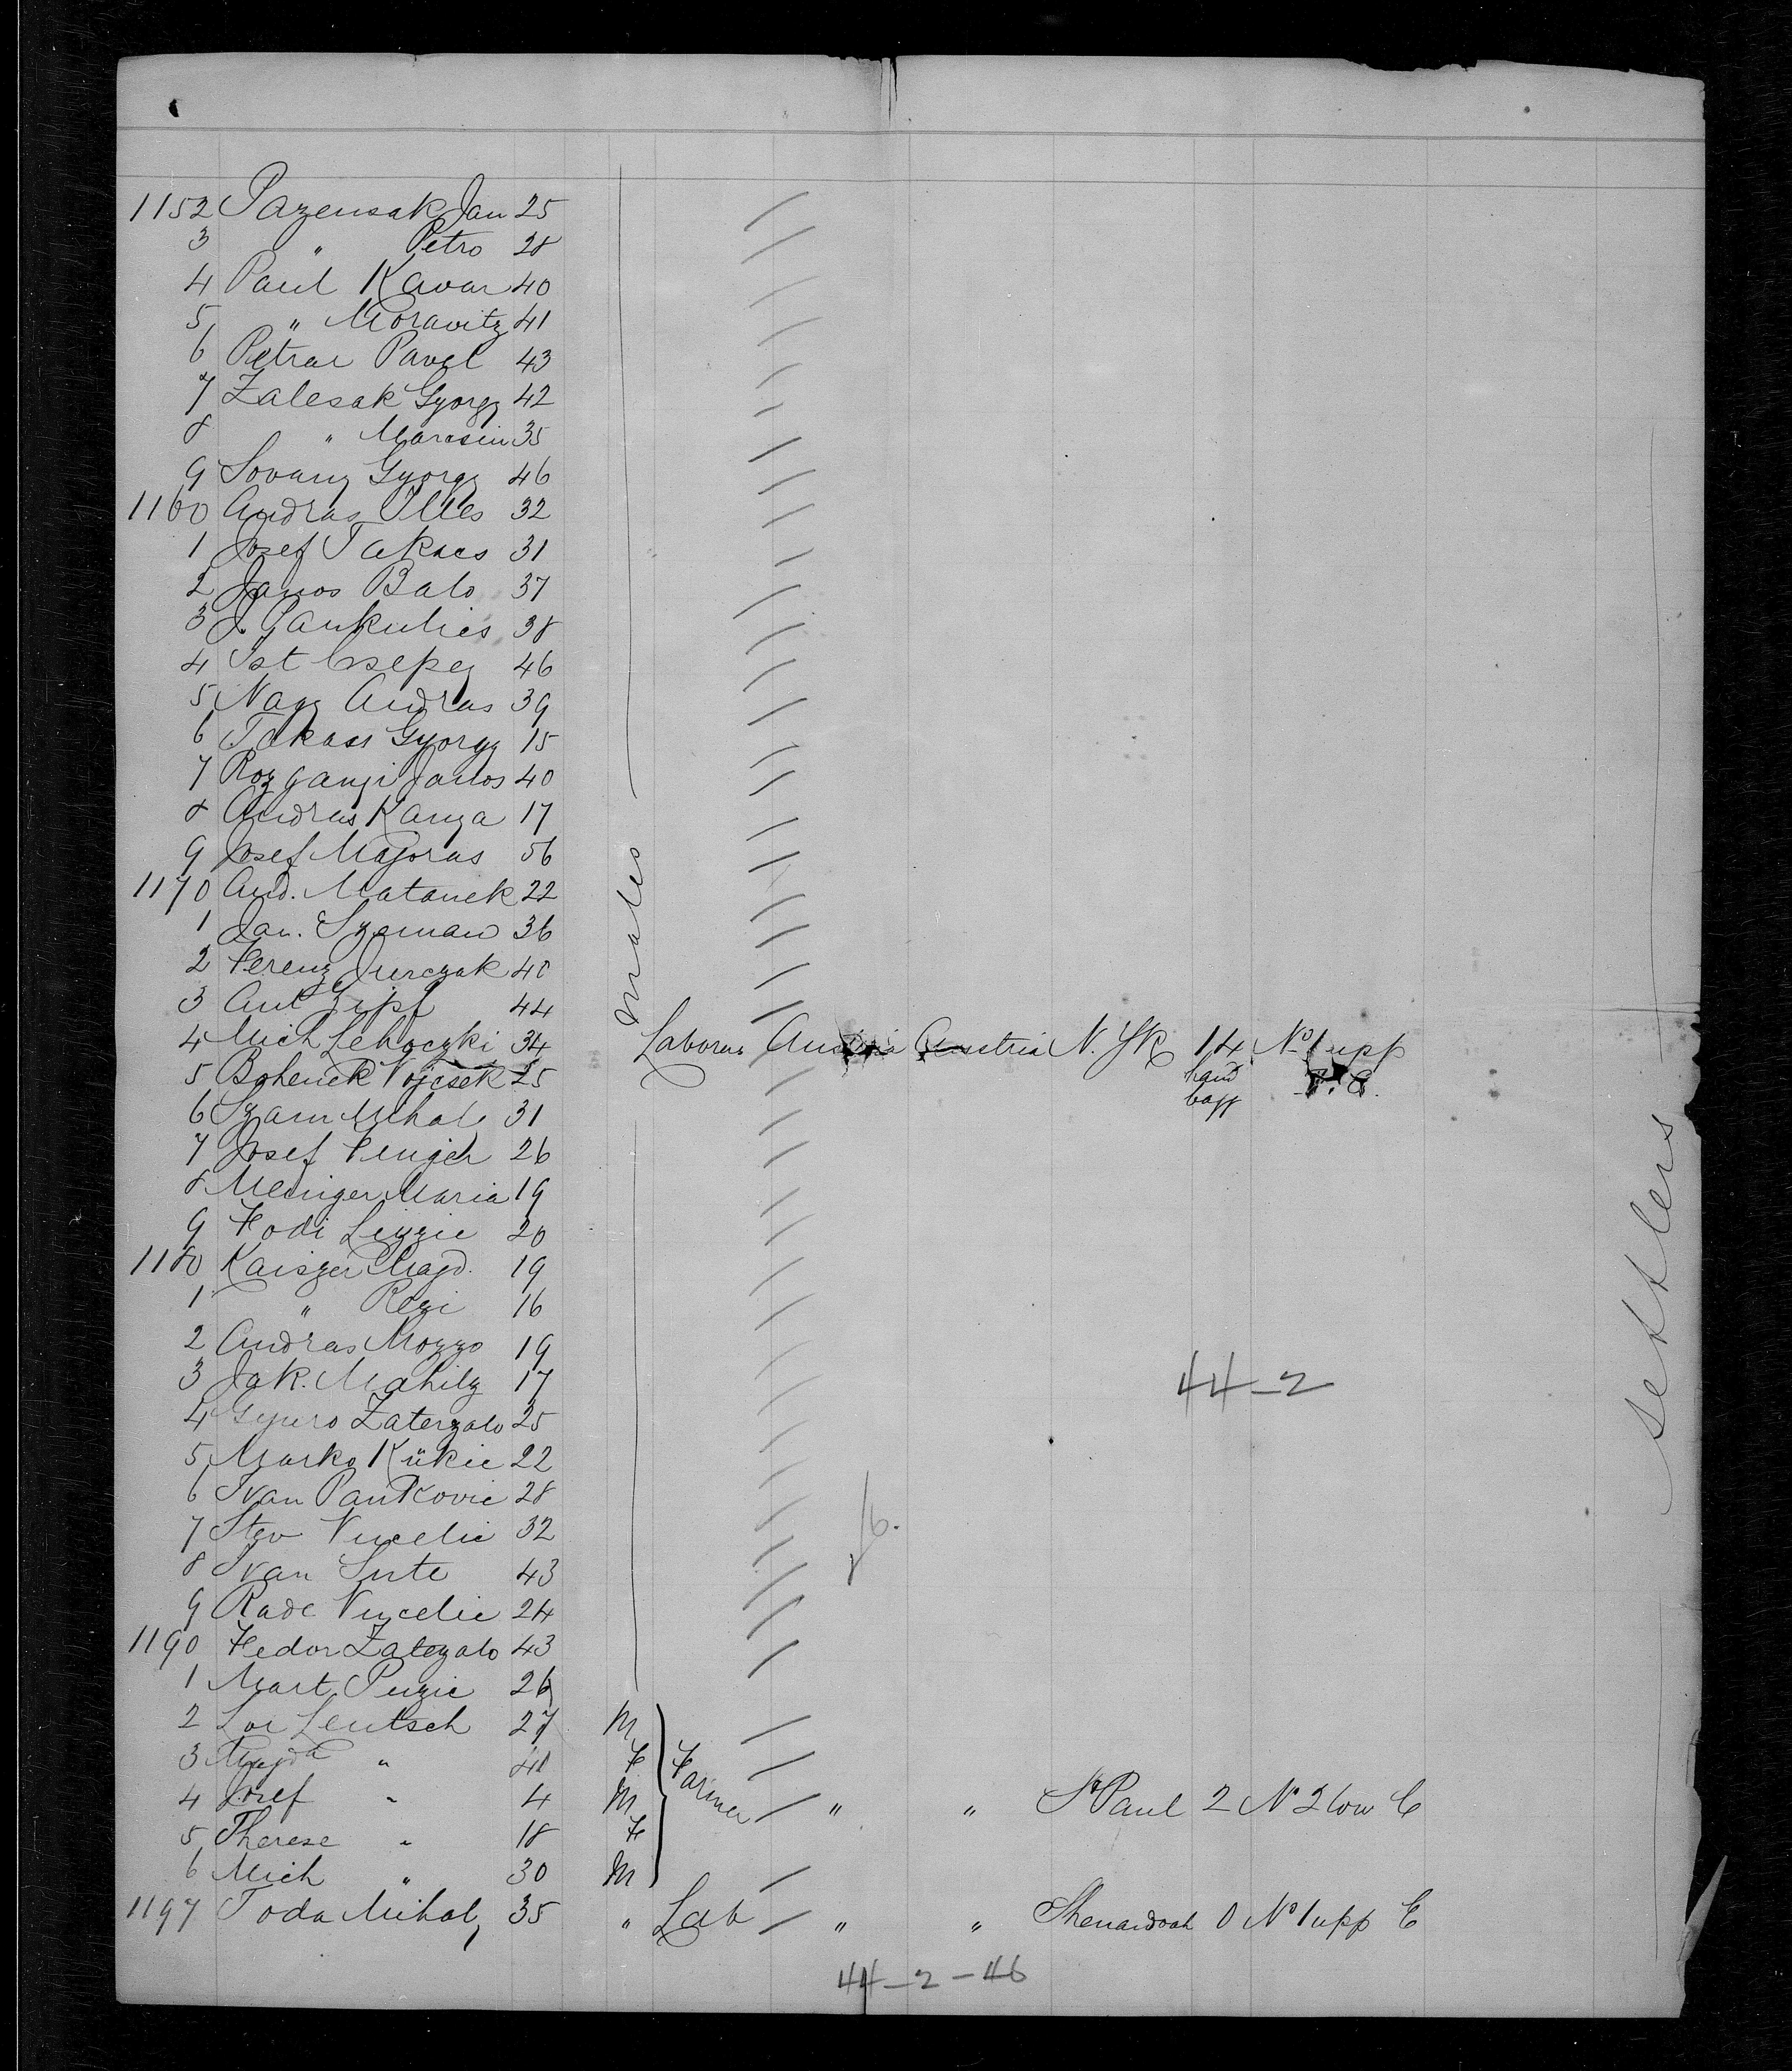 1152 Pazensak Jan 25
3 " Petro 28
4 Paul Kavar 40
5 " Moravitz 41
6 Petrar Pavel 43
7 Zalesak Gyorgy 42
8 " Marcsin 35
9 Sovany Gyorgy 46
1160 Andras Illes 32
1 Josef Takacs 31
2 Janos Balo 37
3 J. Gankulics 38
4 Ist Csepey 46
5 Nagy Andras 39
6 Takacs Gyorgy 15
7 Janos 40
8 Andras Kanya 17
9 Josef Majoras 56
1170 And. Matanek 22
1 Jan. Szeman 36
2 Ferenz Jurczak 40
3 Ant Zipf 44
4 Mich Lehoczki 34 Laborus Austria Austria N. Yk 14 No 1 upp
5 Bohenek Vojcsek 25 hand
6 Szam Mihal 31 bagg
7 Josef Fenger 26
8 Meniger Maria 19
9 Fodi Lizzie 20
1180 Kaiszer Magd. 19
1 " Rezi 16
2 Andras Mozzo 19
3 Jak. Mahilz 17 44-2
4 Gyuro Zaterzalo 25
5 Marko Kükic 22
6 Ivan Pankovic 28
7 Stev Vucelic 32 16.
8 Ivan Sute 43
9 Rade Vucelic 24
1190 Fedor Zatezalo 43
1 Mart Puzic 26
2 Lor Lentsch 27 M
3 Magda " F Farmer
4 Josef " 4 M " " St Paul 2 No 2 low C
5 Therese " 18 F
6 Mich " 30 M
1197 Toda Mihaly 35 " Lab " " Shenandoah 0 No 1 upp C
44-2-46
males
settlers